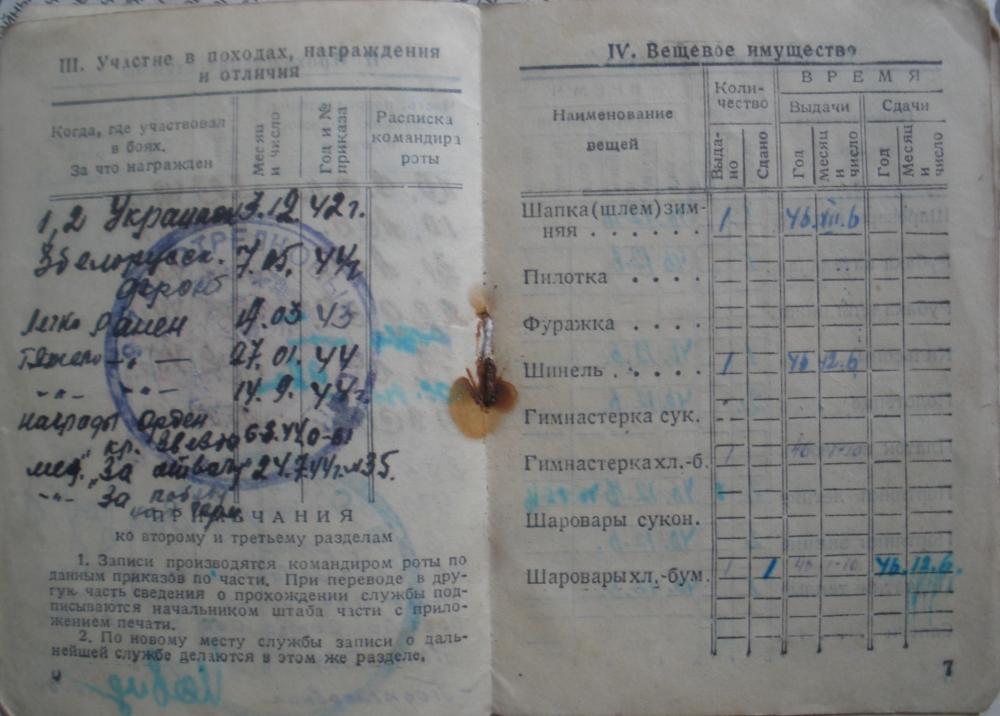 III. Участие в походах, награждения
и отличия
Когда, где участвовал
в боях.
За что награжден
Месяц
и число
Год и №
приказа
Расписка
командира
роты
1,2 Украинск 3.12. 42г.
3 Белорусск. 7.05. 44г
фронт
Легко ранен 17.03 43
Тяжело -"- 27.01. 44
-"- -"- 14.9. 44г.
награды Орден
кр. Звезда 6.3.44
мед. "За отвагу" 24.7.44г. №35.
-"- За победу
ПРИМЕЧАНИЯ
ко второму и третьему разделам
1. Записи производятся командиром роты по
данным приказов по части. При переводе в дру-
гую часть сведения о прохождении службы под-
писываются начальником штаба части с прило-
жением печати.
2. По новому месту службы записи о даль-
нейшей службе делаются в этом же разделе.
IV. Вещевое имущество
Наименование
вещей
Коли-
чество
ВРЕМЯ
Выдачи
Сдачи
Выда-
но
Сдано
Год
Месяц
и
число
Год
Месяц
и
число
Шапка (шлем) зим-
няя . . . . . . 1 46 XII.6
Пилотка . . . .
Фуражка . . . .
Шинель . . . . . 1 46 12.6
Гимнастерка сук.
Гимнастерка хл.-б. 1 46 1-10
Шаровары сукон.
Шаровары хл.-бум. 1 1 46 1-10 46. 12.6.
7